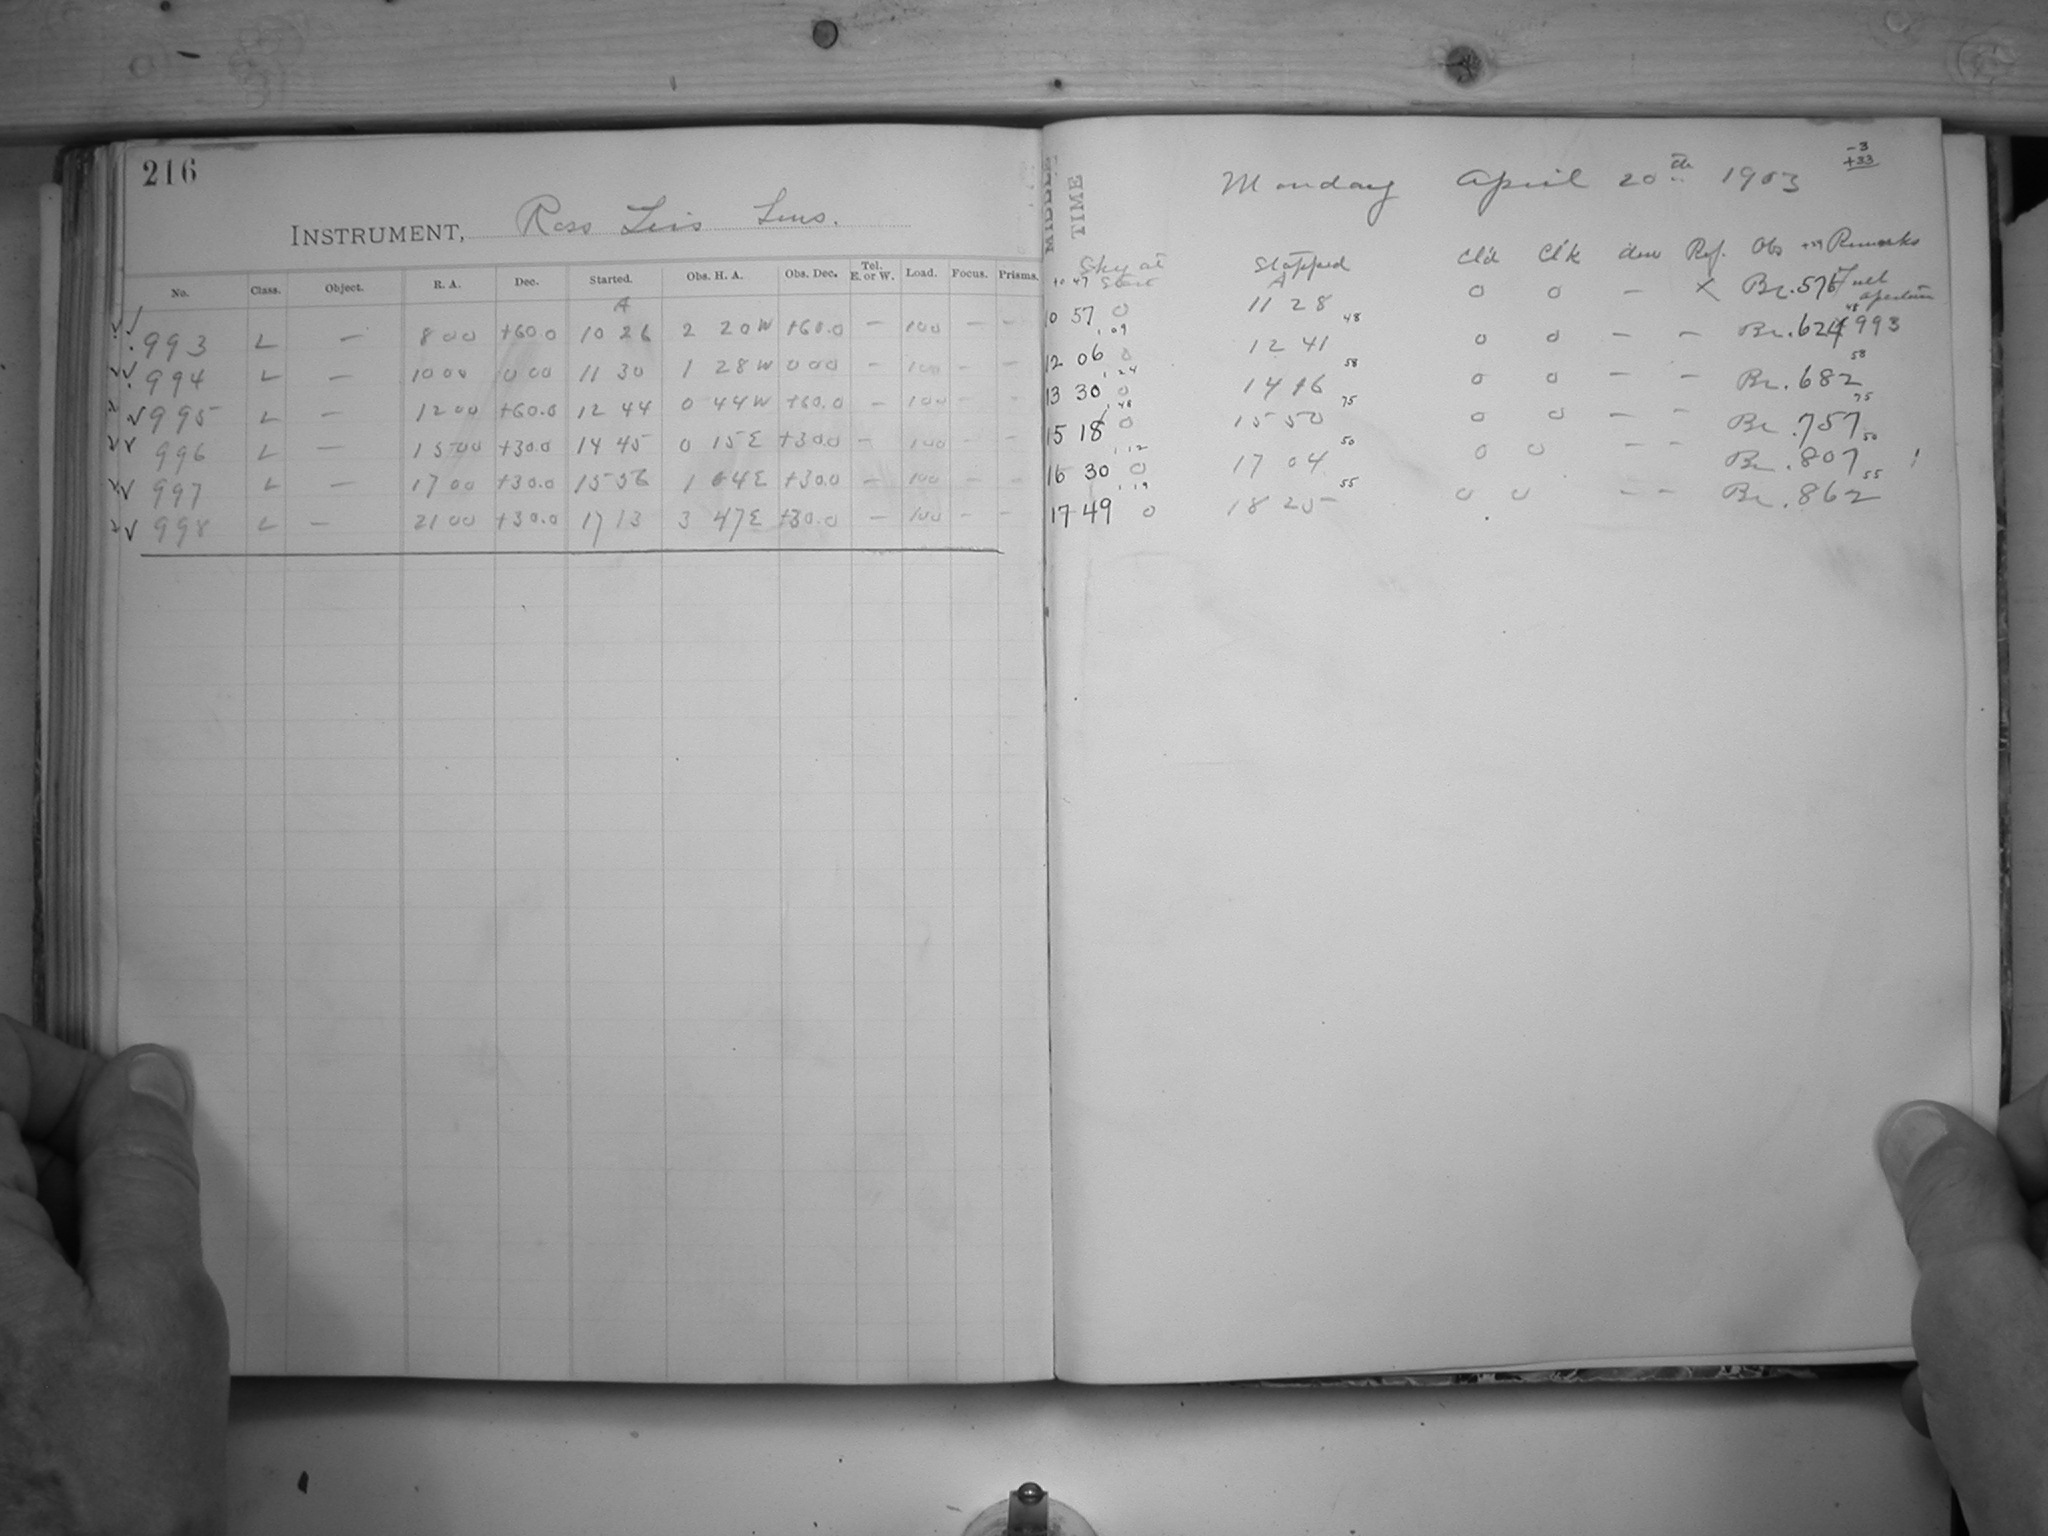 216
INSTRUMENT, Ross Lens.
No. Class. Object. R. A. Dec. Started. Obs. H. A. Obs. Dec. Tel. E. or W. Load. Focus. Prisms.
A
993 L — 8 00 +60.0 10 26 2 20 W +60.0 — 100 — —
994 L — 10 00 0 00 11 30 1 28 W 0 00 — 100 — —
995 L — 12 00 +60.0 12 44 0 44 W +60.0 — 100 — —
996 L — 15 00 +30.0 14 45 0 15 E +30.0 — 100 — —
997 L — 17 00 +30.0 15 56 1 04 E +30.0 — 100 — —
998 L — 21 00 +30.0 17 13 3 47 E +30.0 — 100 — —
MIDDLE TIME
Monday April 20th 1903
-3
+33
Sky at Start Stopped Cl'd Cl'k dew Ref. Obs Remarks
+0 47 A
10 57 0 11 28 0 0 — X Br. 576 Full aperture
1.09 48 48
12 06 0 12 41 0 0 — — Br. 624 993
1.24 58 58
13 30 0 14 16 0 0 — — Br. 682
1.48 75 75
15 18 0 15 50 0 0 — — Br. 757
1.12 50 50
16 30 0 17 04 0 0 — — Br. 807
1.19 55 55
17 49 0 18 25 0 0 — — Br. 862